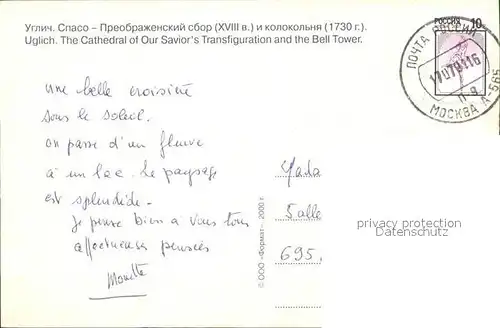 Углич. Спасо – Преображенский сбор (XVIII в.) и колокольня (1730 г.).
Uglich. The Cathedral of Our Savior's Transfiguration and the Bell Tower.
РОССИЯ 10
ПОЧТА РОССИИ
МОСКВА А-565
une belle croisière
sous le soleil.
on passe d'un fleuve
à un lac. Le paysage
est splendide.
Je pense bien à vous tous
affectueuses pensées
© ООО «Формат» 2000 г.
Salle
695.
privacy protection
Datenschutz